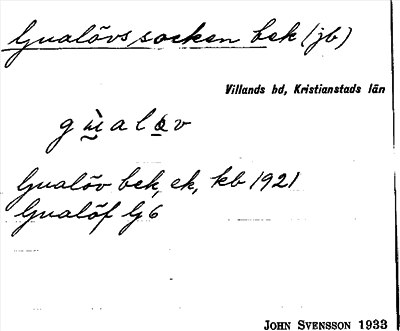 Gualövs socken bek (jb)
Villands hd, Kristianstads län
g ù̬ a l ö̱ v
Gualöv bek, ek, kb 1921
Gualöf G6
JOHN SVENSSON 1933